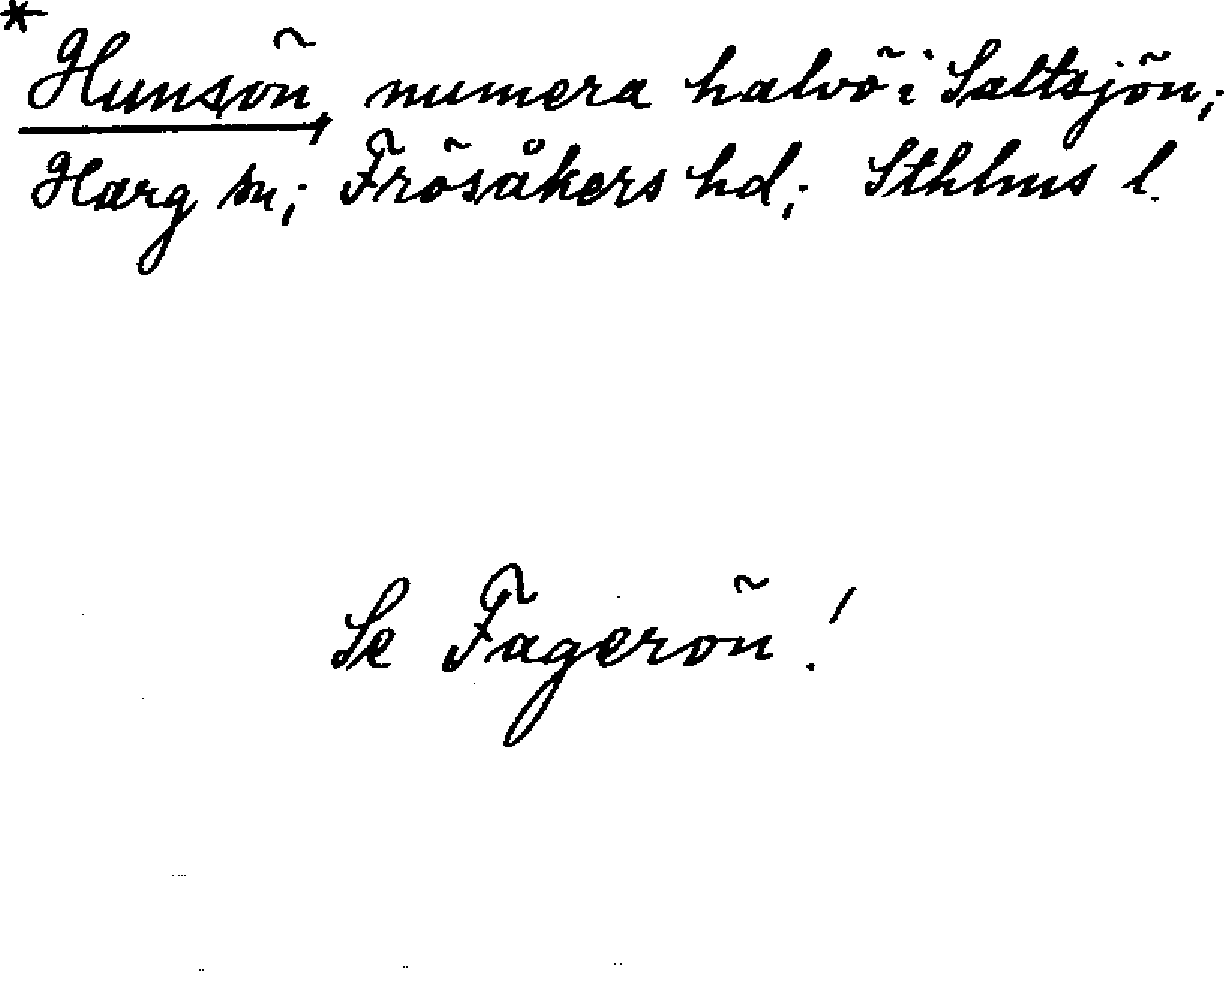 * Hunsön, numera halvö i Saltsjön;
Harg sn; Frösåkers hd; Sthlms l.
Se Fagerön!